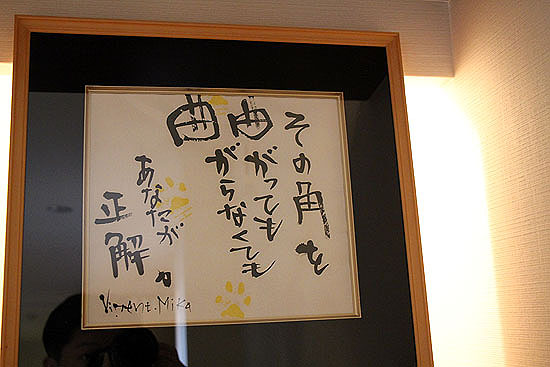 その角を
曲がっても
曲がらなくても
あなたが
正解
Mika